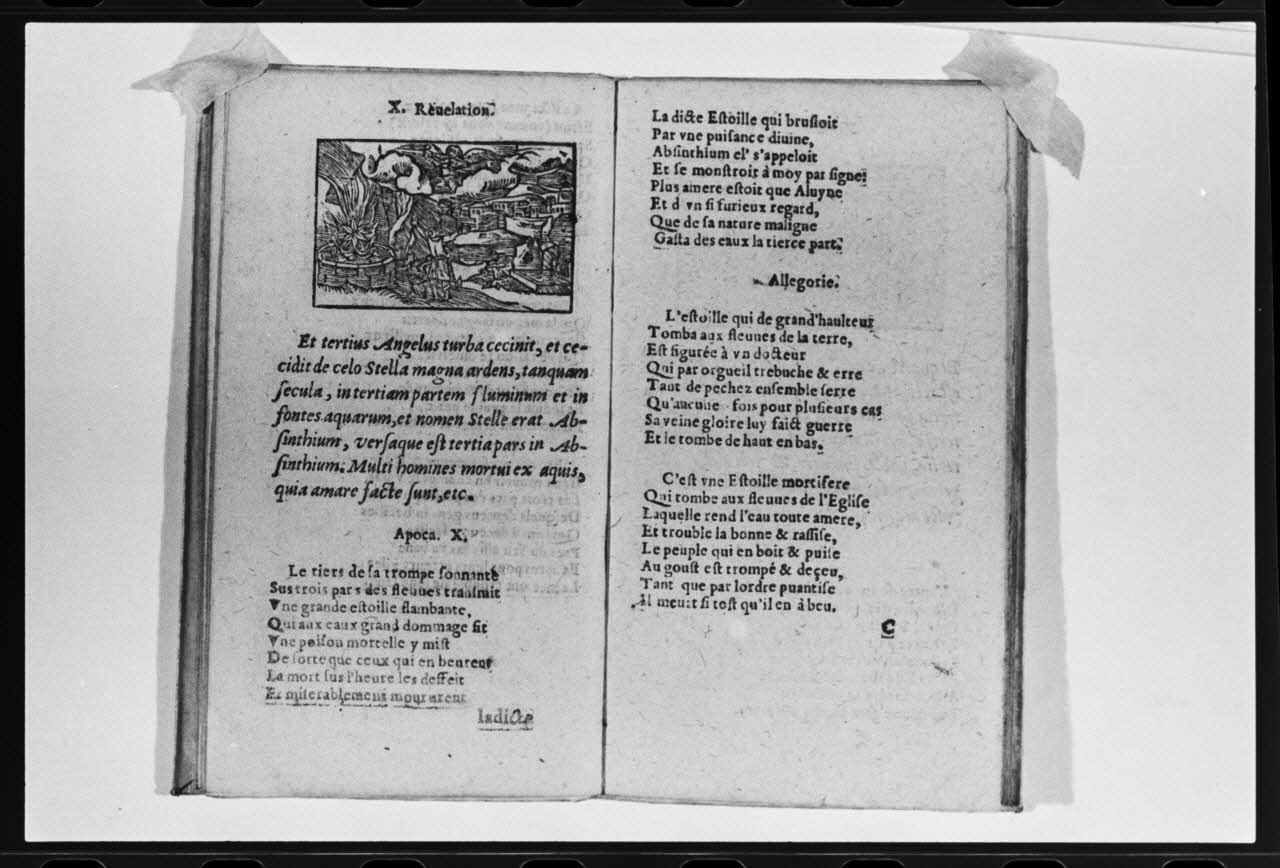 X. Reuelation.
Et tertius Angelus turba cecinit, et ce-
cidit de celo Stella magna ardens, tanquam
ſecula, in tertiam partem fluminum et in
fontes aquarum, et nomen Stelle erat Ab-
ſinthium, verſaque eſt tertia pars in Ab-
ſinthium. Multi homines mortui ex aquis,
quia amare facte ſunt, etc.
Apoca. X.
Le tiers de ſa trompe ſonnante
Sus trois pars des fleuues tranſmit
Vne grande eſtoille flambante,
Qui aux eaux grand dommage fit
Vne poiſon mortelle y miſt
De ſorte que ceux qui en beurent
La mort ſus l'heure les deffeit
Et miſerablement moururent
ladicte
La dicte Eſtoille qui bruſloit
Par vne puiſance diuine,
Abſinthium el' s'appeloit
Et ſe monſtroit à moy par ſigne:
Plus amere eſtoit que Aluyne
Et d vn ſi furieux regard,
Que de ſa nature maligne
Gaſta des eaux la tierce part.
Allegorie.
L'eſtoille qui de grand'haulteur
Tomba aux fleuues de la terre,
Eſt figurée à vn docteur
Qui par orgueil trebuche & erre
Tant de pechez enſemble ſerre
Qu'aucune fois pour pluſieurs cas
Sa veine gloire luy faict guerre
Et le tombe de haut en bas.
C'eſt vne Eſtoille mortifere
Qui tombe aux fleuues de l'Egliſe
Laquelle rend l'eau toute amere,
Et trouble la bonne & raſſiſe,
Le peuple qui en boit & puiſe
Au gouſt eſt trompé & deçeu,
Tant que par lordre puantiſe
Il meurt ſi toſt qu'il en à beu.
C